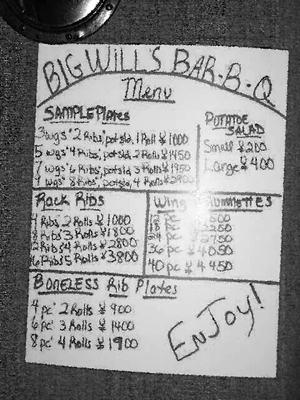 BIG WILL'S BAR-B-Q
Menu
SAMPLE Plates
3 wgs' 2 Ribs', pot sld, 1 Roll ¥ 1000
5 wgs' 4 Ribs', pot sld, 2 Rolls ¥ 1450
7 wgs' 6 Ribs', pot sld, 3 Rolls ¥ 1950
wgs' 8 Ribs', pot sld, 4 Rolls
POTATOE SALAD
Small ¥ 200
Large ¥ 400
Rack Ribs
4 Ribs' 2 Rolls ¥ 1000
8 Ribs' 3 Rolls ¥ 1800
12 Ribs' 4 Rolls ¥ 2800
16 Ribs' 5 Rolls ¥ 3800
Wing
12 pc
pc
24 pc
36 pc ¥ 4050
40 pc ¥ 4450
BONELESS Rib Plates
4 pc' 2 Rolls ¥ 900
6 pc' 3 Rolls ¥ 1400
8 pc' 4 Rolls ¥ 1900
ENJOY!